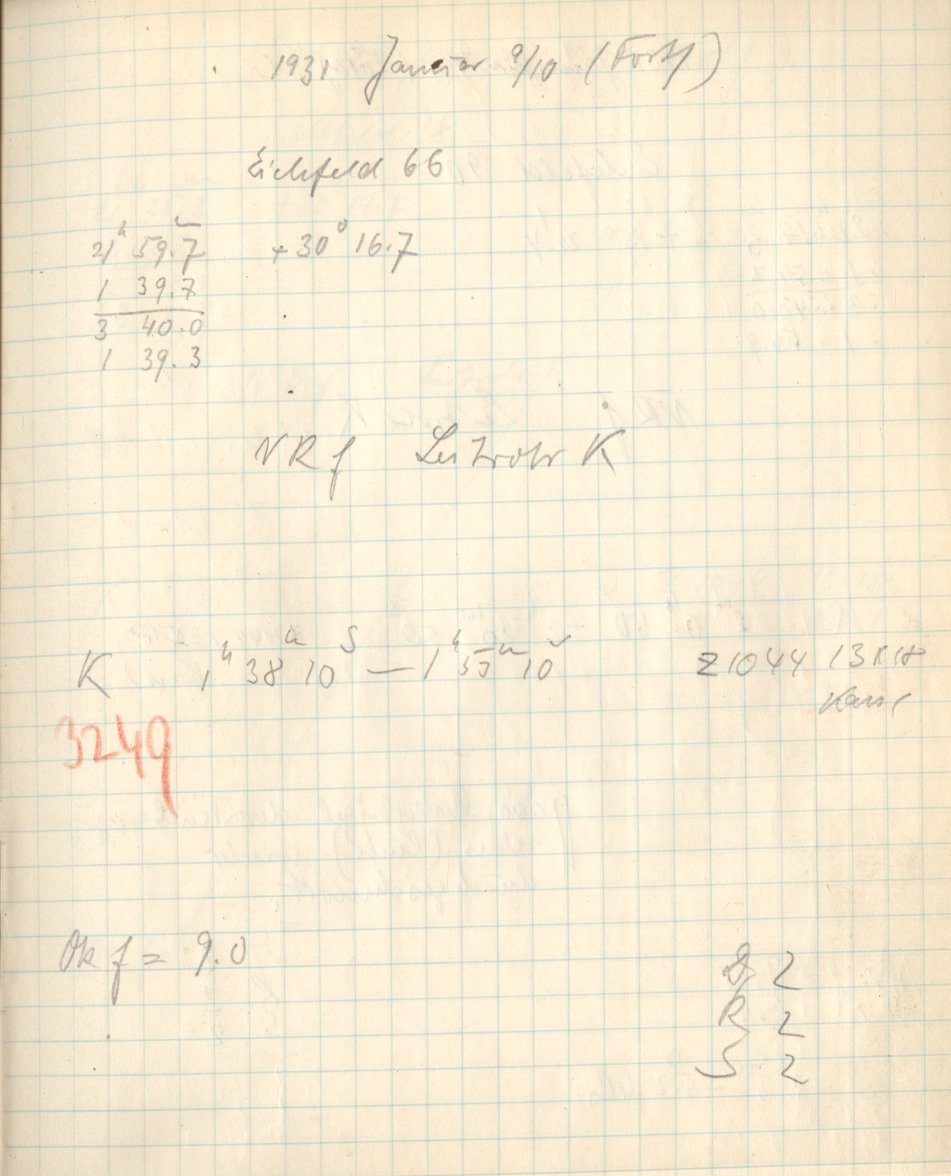 1931 Januar 9/10 (Forts)
Eichfeld 66
2h 59.7m +30° 16.7
1 39.7
3 40.0
1 39.3
NRf Leitrohr K
K 1h 38m 10s — 1h 55m 10s Z1044 13x18
3249
Ok f = 9.0
D 2
R 2
S 2